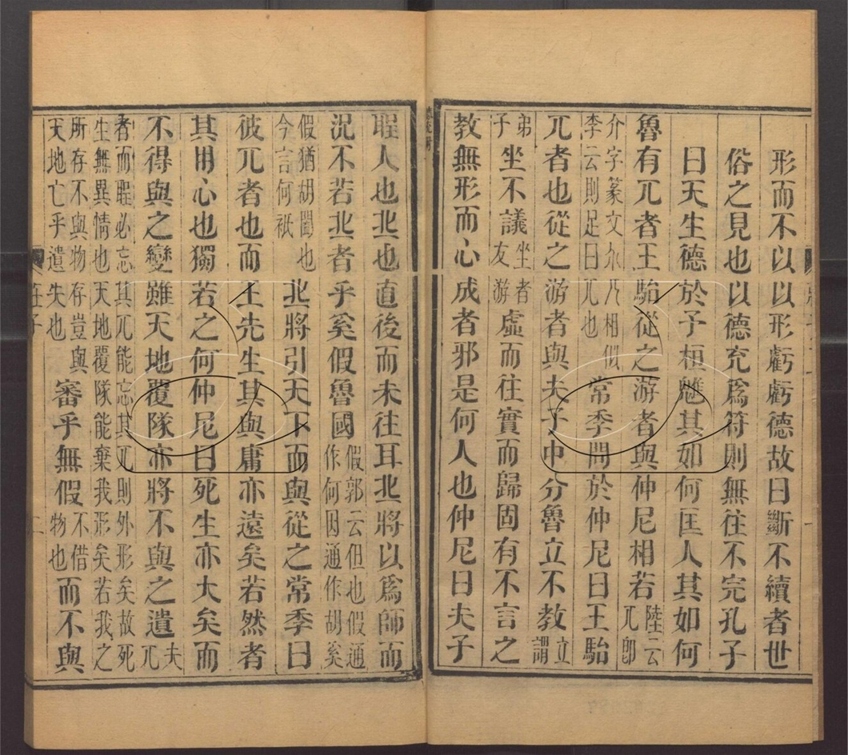 形而不以以形虧虧德故曰斷不續者世
俗之見也以德充爲符則無往不完孔子
曰天生德於予桓魋其如何匡人其如何
魯有兀者王駘從之游者與仲尼相若陸云兀卽
介字篆文乃相假李云則足曰兀也常季問於仲尼曰王駘
兀者也從之游者與夫子中分魯立不教立謂
弟子坐不議坐者友游虛而往實而歸固有不言之
教無形而心成者邪是何人也仲尼曰夫子
聖人也丠也直後而未往耳丠將以爲師而
況不若丠者乎奚假魯國假郭云但也假通作何因通作胡奚
假猶胡閩也今言何祇丠將引天下而與從之常季曰
彼兀者也而王先生其與庸亦遠矣若然者
其用心也獨若之何仲尼曰死生亦大矣而
不得與之變雖天地覆隊亦將不與之遺夫兀
者而聖必忘其兀能忘其兀則外形矣故死生無異情也天地覆隊能棄我形矣若我之
所存不與物存豈與天地亡乎遺失也審乎無假不借物也而不與
莊子
二